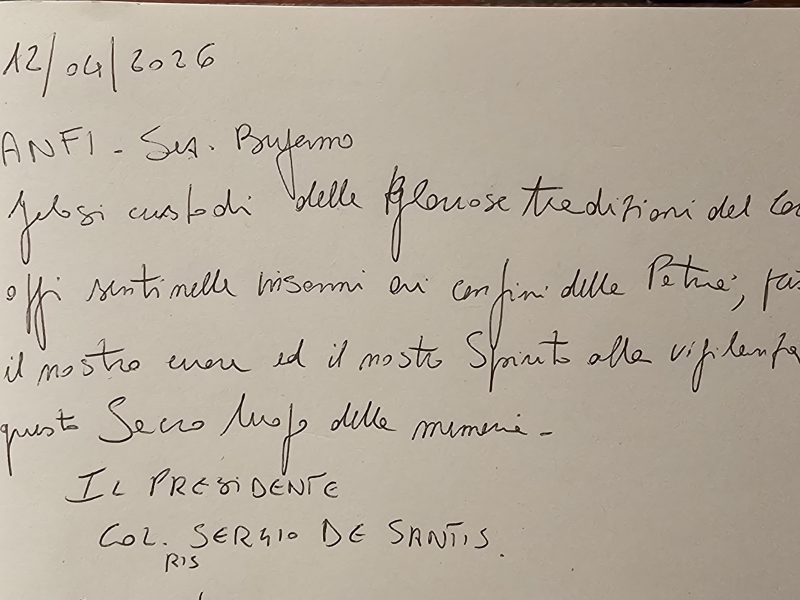 12/04/2026
ANFI - Sez. Palermo
gelosi custodi delle gloriose tradizioni del
oggi sentinelle insonni ai confini della Patria,
il nostro cuore ed il nostro Spirito alla vigilanza
questo Sacro luogo della memoria -
IL PRESIDENTE
COL. SERGIO DE SANTIS.
RIS